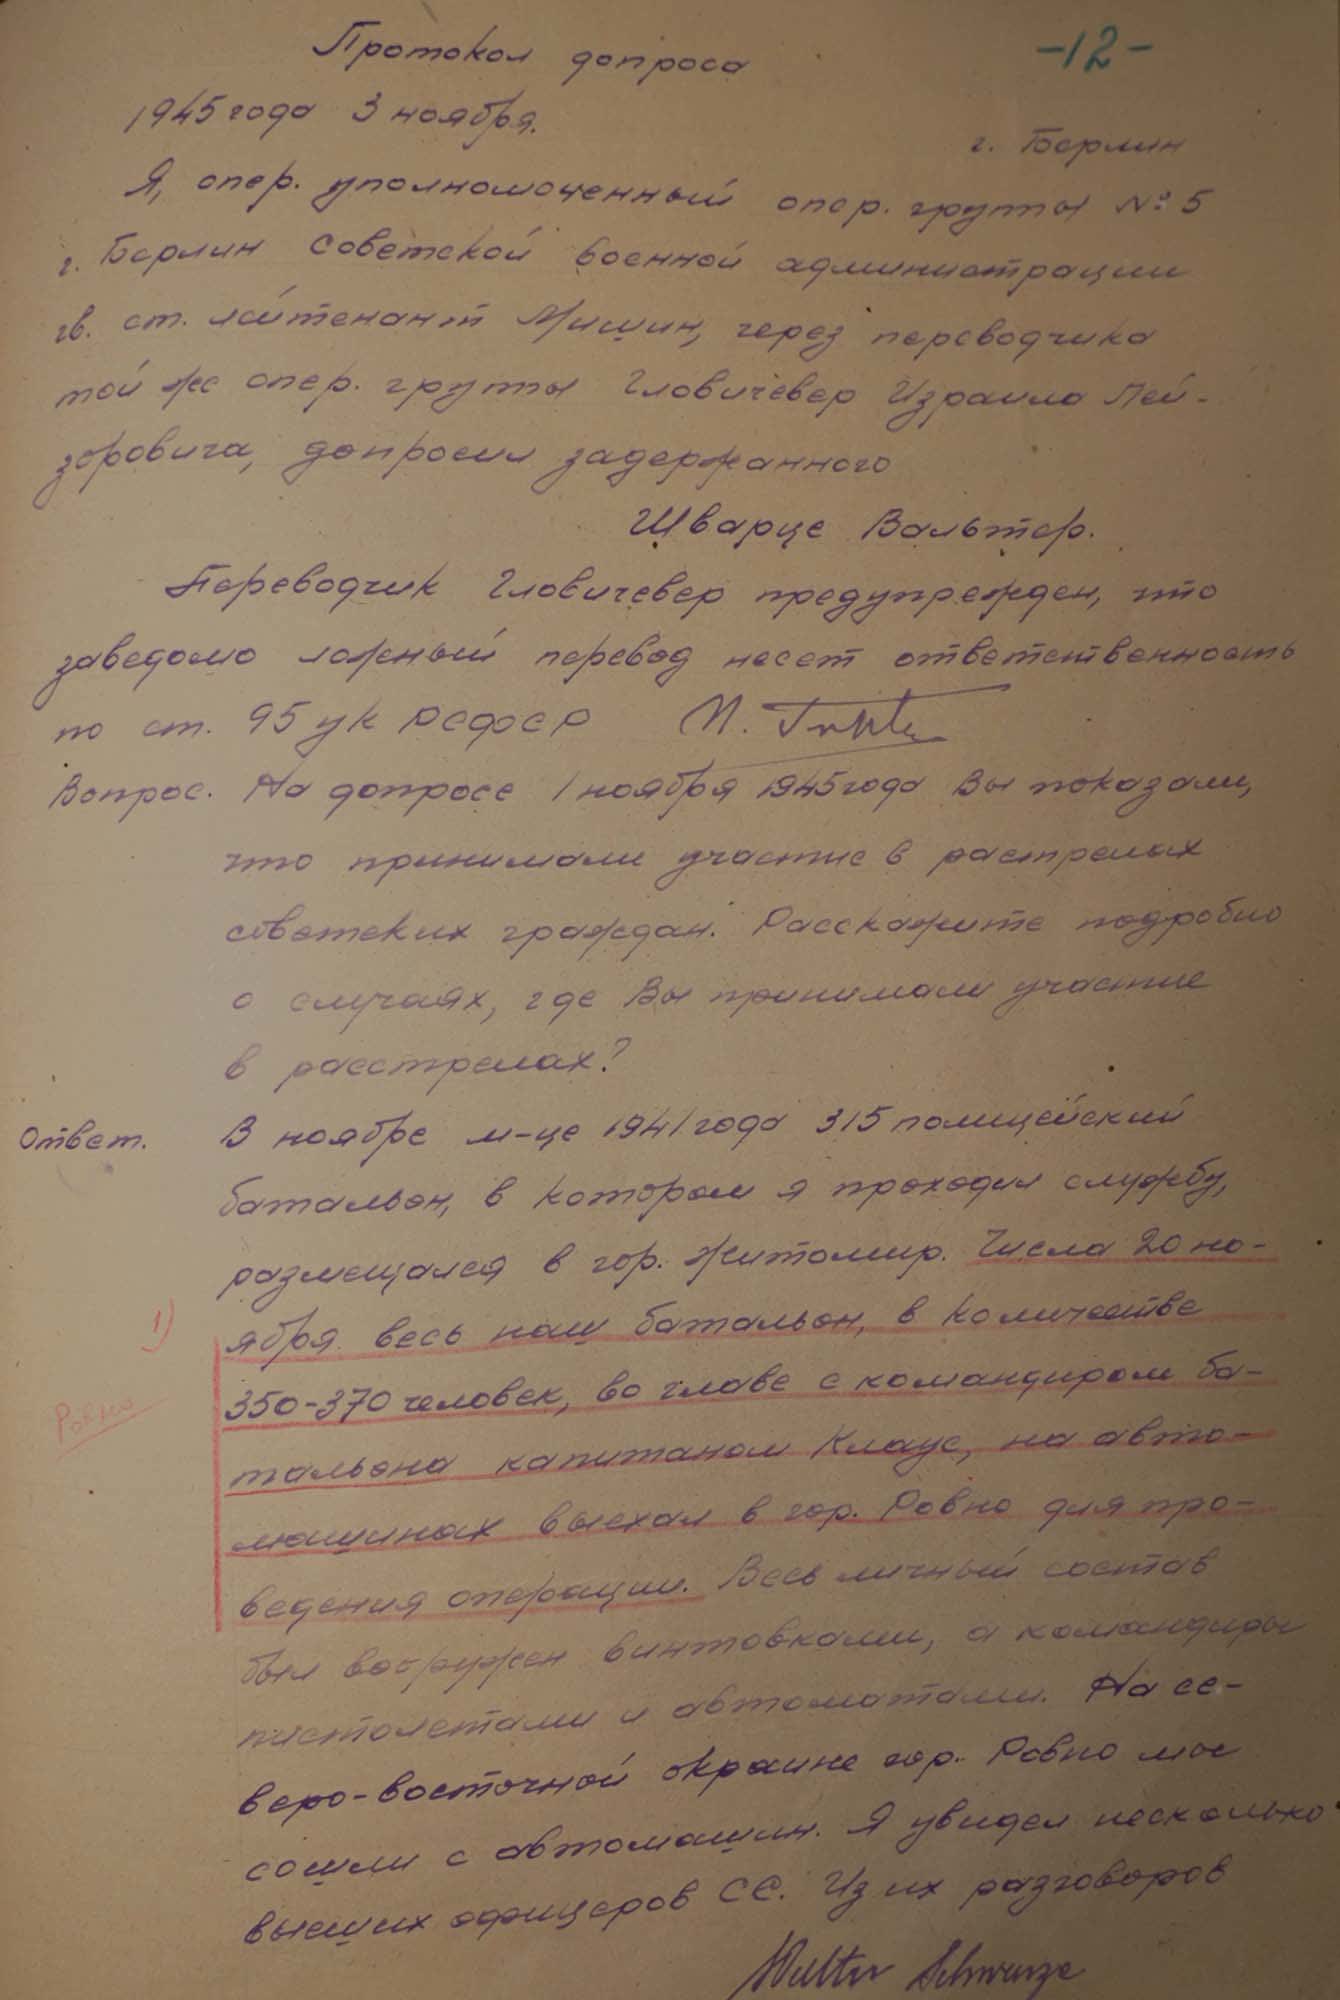 Протокол допроса
-12-
1945 года 3 ноября.
г. Берлин
Я, опер. уполномоченный опер. группы № 5
г. Берлин Советской военной администрации
гв. ст. лейтенант Мишин, через переводчика
той же опер. группы Гловичевер Израила Лей-
зоровича, допросил задержанного
Шварце Вальтер.
Переводчик Гловичевер предупрежден, что
заведомо ложный перевод несет ответственность
по ст. 95 УК РСФСР
Вопрос. На допросе 1 ноября 1945 года Вы показали,
что принимали участие в растрелах
советских граждан. Расскажите подробно
о случаях, где Вы принимали участие
в расстрелах?
Ответ. В ноябре м-це 1941 года 315 полицейский
батальон, в котором я проходил службу,
размещался в гор. Житомир. Числа 20 но-
1)
ября весь наш батальон, в количестве
350-370 человек, во главе с командиром ба-
Ровно
тальона капитаном Клаус, на авто-
машинах выехал в гор. Ровно для про-
ведения операции. Весь личный состав
был вооружен винтовками, а командиры
пистолетами и автоматами. На се-
веро-восточной окраине гор. Ровно мы
сошли с автомашин. Я увидел несколько
высших офицеров СС. Из их разговоров
Walter Schwarze